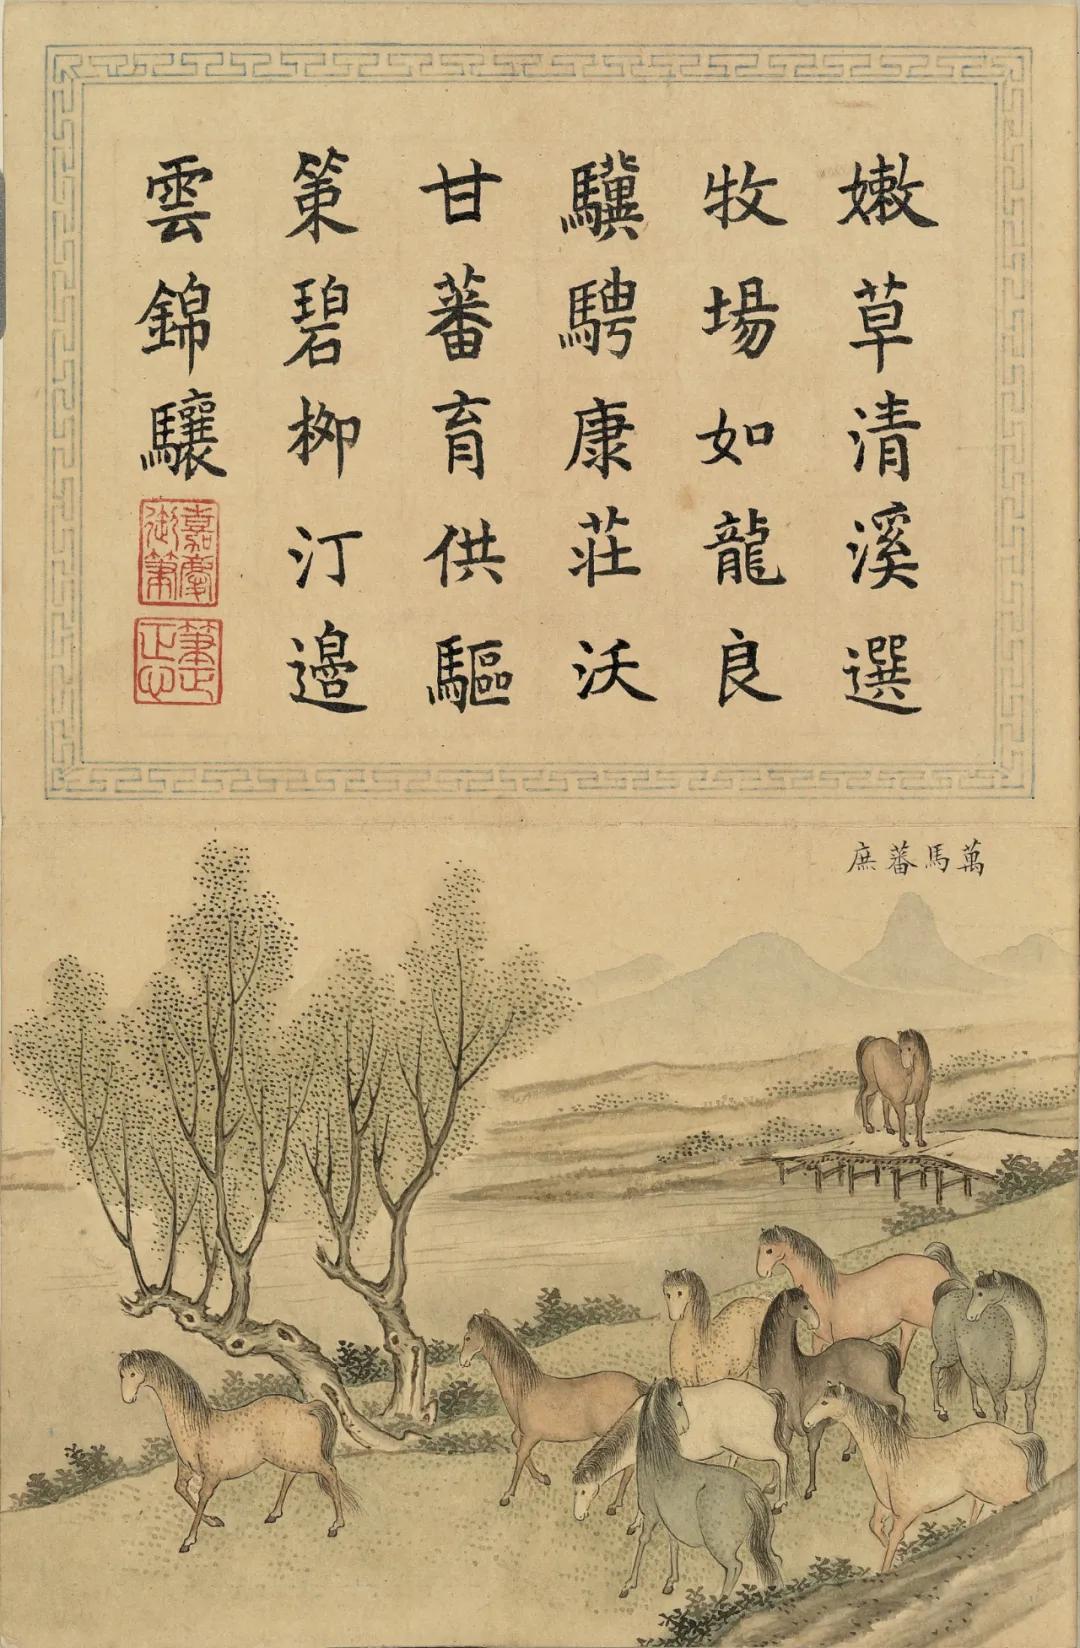 嫩草清溪選
牧場如龍良
驥騁康莊沃
甘蕃育供驅
策碧柳汀邉
雲錦驤
嘉慶
御筆
筆正
心正
萬馬蕃庶